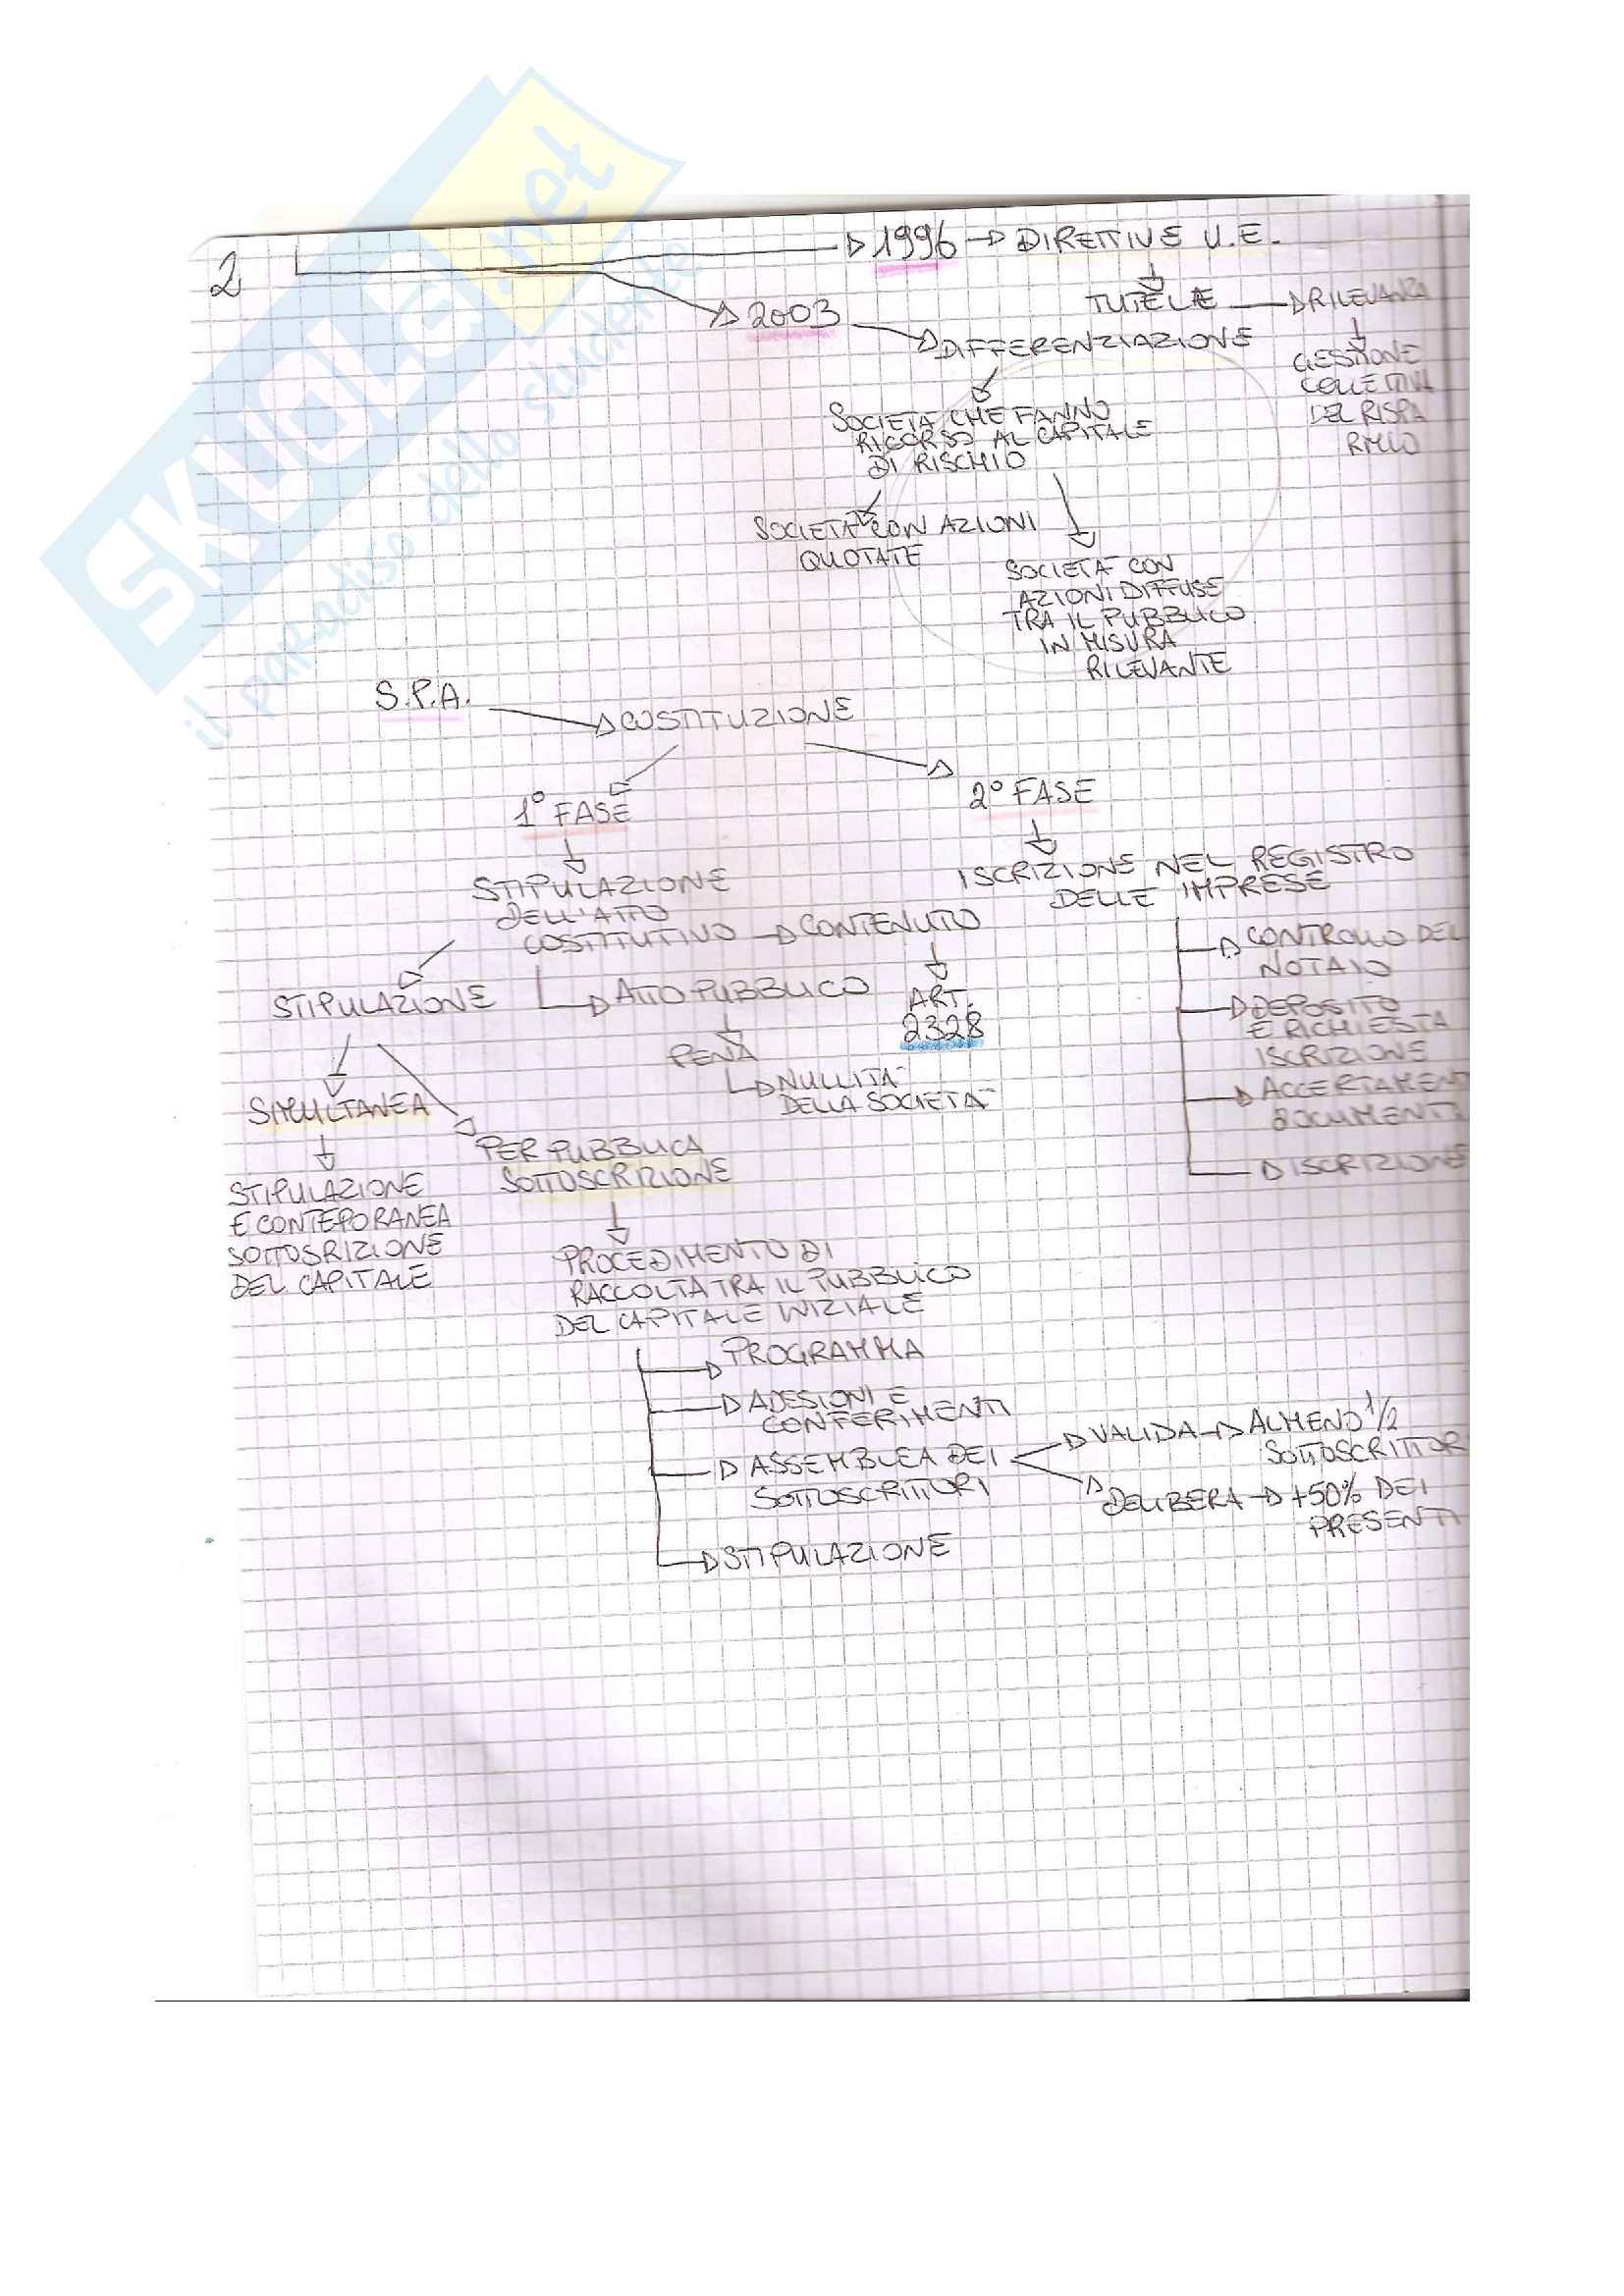 SKUOLA.net
il paradiso dello studente
2
1996 → DIRETTIVE U.E.
2003
TUTELE
RILEVANZA
DIFFERENZIAZIONE
GESTIONE
COLLETTIVA
DEL RISPA
RMIO
SOCIETÀ CHE FANNO
RICORSO AL CAPITALE
DI RISCHIO
SOCIETÀ CON AZIONI
QUOTATE
SOCIETÀ CON
AZIONI DIFFUSE
TRA IL PUBBLICO
IN MISURA
RILEVANTE
S.P.A.
COSTITUZIONE
1° FASE
2° FASE
STIPULAZIONE
DELL'ATTO
COSTITUTIVO → CONTENUTO
ISCRIZIONE NEL REGISTRO
DELLE IMPRESE
STIPULAZIONE
ATTO PUBBLICO
ART.
2328
PENA
NULLITÀ
DELLA SOCIETÀ
CONTROLLO DEL
NOTAIO
DEPOSITO
E RICHIESTA
ISCRIZIONE
ACCERTAMENT
DOCUMENTI
ISCRIZIONE
SIMULTANEA
PER PUBBLICA
SOTTOSCRIZIONE
STIPULAZIONE
E CONTEPORANEA
SOTTOSRIZIONE
DEL CAPITALE
PROCEDIMENTO DI
RACCOLTA TRA IL PUBBLICO
DEL CAPITALE INIZIALE
PROGRAMMA
ADESIONI E
CONFERIMENTI
ASSEMBLEA DEI
SOTTOSCRITTORI
VALIDA → ALMENO 1/2
SOTTOSCRITTOR
DELIBERA → +50% DEI
PRESENTI
STIPULAZIONE